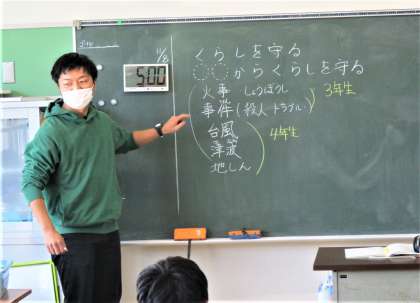 11/8
5:00
くらしを守る
○○からくらしを守る
火事 しょうぼうし
事件(殺人・トラブル) 3年生
台風
津波 4年生
地しん